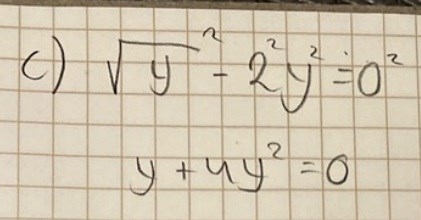 c) √y² - 2²y² = 0²
y + 4y² = 0